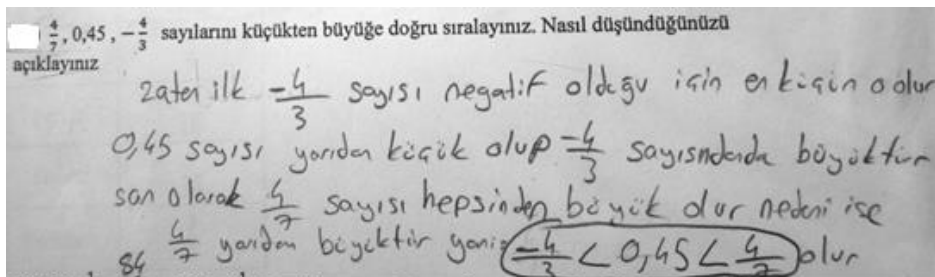 4/7, 0,45, -4/3 sayılarını küçükten büyüğe doğru sıralayınız. Nasıl düşündüğünüzü
açıklayınız
zaten ilk -4/3 sayısı negatif olduğu için en küçün o olur
0,45 sayısı yarıdan küçük olup -4/3 sayısındanda büyüktür
son olarak 4/7 sayısı hepsinden büyük olur nedeni ise
4/7 yarıdan büyüktür yani -4/3 < 0,45 < 4/7 olur
84